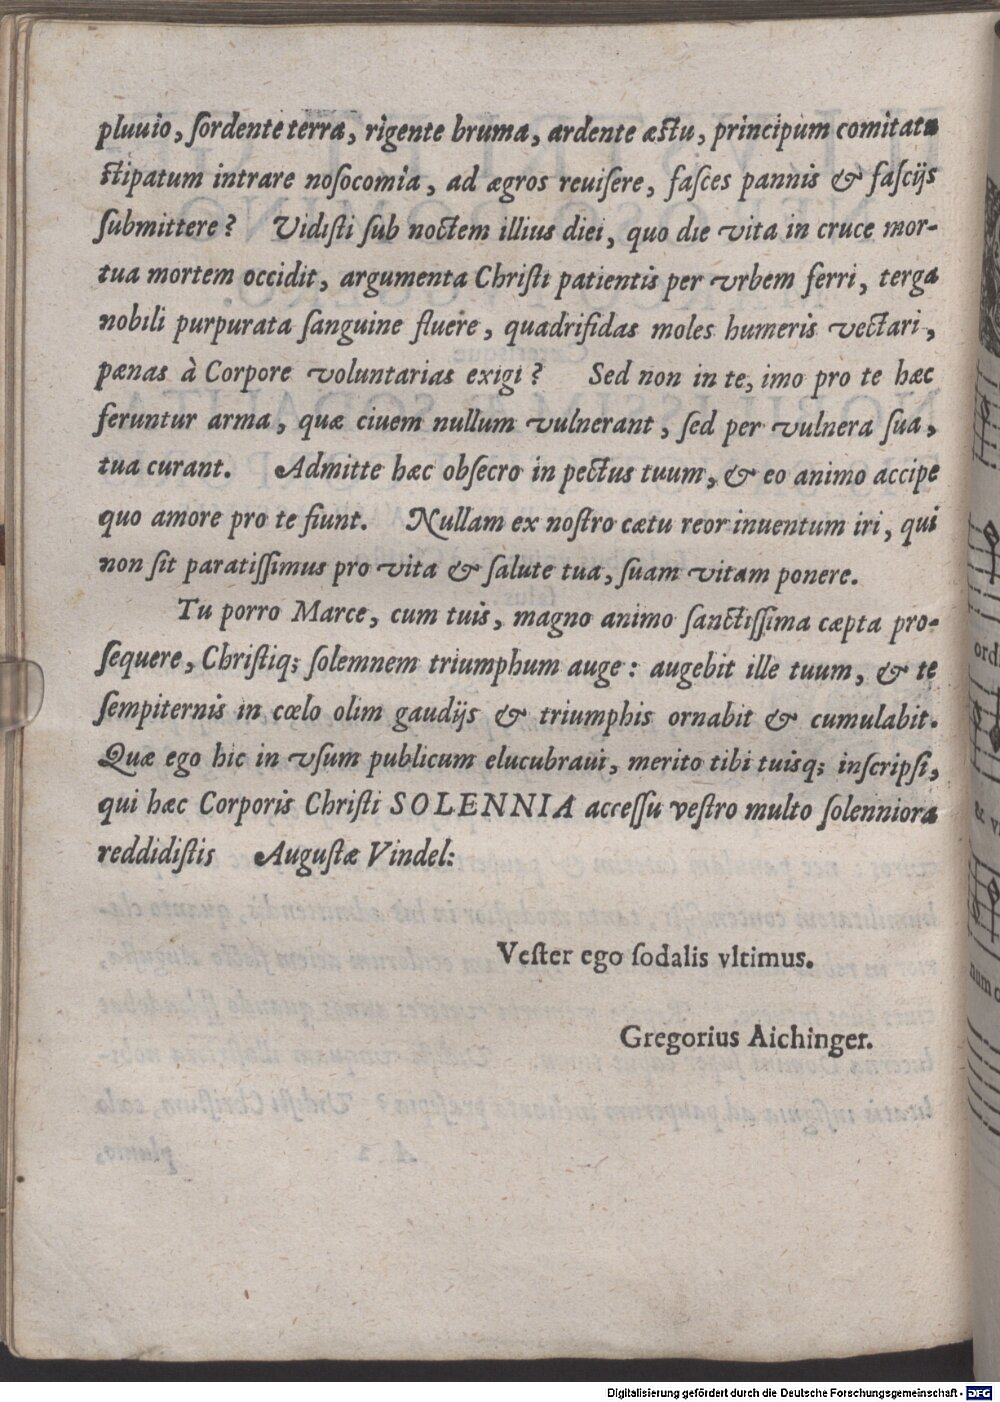 pluuio, ſordente terra, rigente bruma, ardente æſtu, principum comitatu
ſtipatum intrare noſocomia, ad ægros reuiſere, faſces pannis & faſcijs
ſubmittere? Vidiſti ſub noctem illius diei, quo die vita in cruce mor-
tua mortem occidit, argumenta Chriſti patientis per vrbem ferri, terga
nobili purpurata ſanguine fluere, quadrifidas moles humeris vectari,
pænas à Corpore voluntarias exigi? Sed non in te, imo pro te hæc
feruntur arma, quæ ciuem nullum vulnerant, ſed per vulnera ſua,
tua curant. Admitte hæc obſecro in pectus tuum, & eo animo accipe
quo amore pro te fiunt. Nullam ex noſtro cætu reor inuentum iri, qui
non ſit paratiſſimus pro vita & ſalute tua, ſuam vitam ponere.
Tu porro Marce, cum tuis, magno animo ſanctiſſima cæpta pro-
ſequere, Chriſtiq; ſolemnem triumphum auge: augebit ille tuum, & te
ſempiternis in cœlo olim gaudijs & triumphis ornabit & cumulabit.
Quæ ego hic in vſum publicum elucubraui, merito tibi tuisq; inſcripſi,
qui hæc Corporis Chriſti SOLENNIA acceſſu veſtro multo ſolenniora
reddidiſtis Auguſtæ Vindel:
Veſter ego ſodalis vltimus.
Gregorius Aichinger.
ord
& v
num
Digitalisierung gefördert durch die Deutsche Forschungsgemeinschaft - DFG